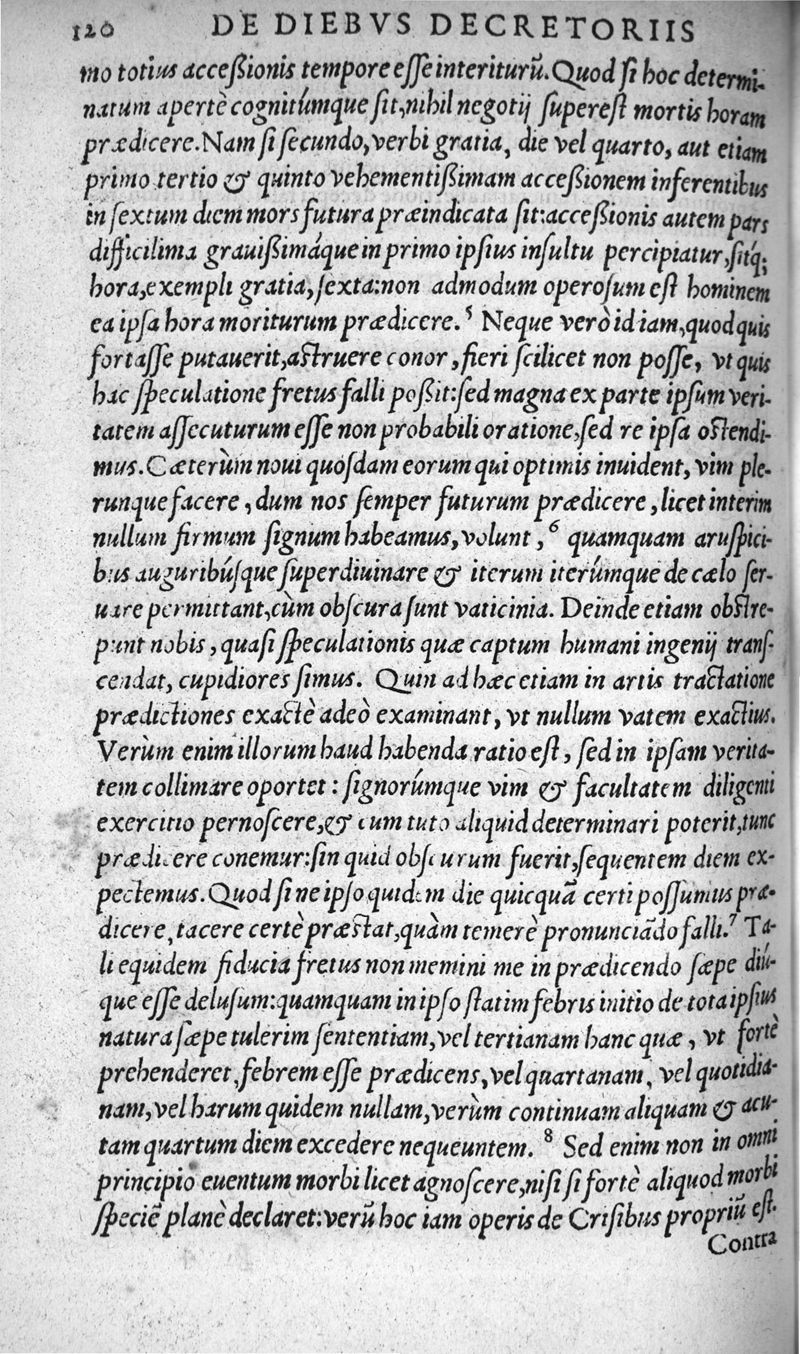 120 DE DIEBVS DECRETORIIS
mo totius accessionis tempore esse interiturũ. Quod si hoc determi-
natum apertè cognitúmque sit, nihil negotij superest mortis horam
prædicere. Nam si secundo, verbi gratia, die vel quarto, aut etiam
primo tertio & quinto vehementissimam accessionem inferentibus
in sextum diem mors futura præindicata sit: accessionis autem pars
difficilima grauissimáque in primo ipsius insultu percipiatur, sitq́;
hora, exempli gratia, sexta: non admodum operosum est hominem
ea ipsa hora moriturum prædicere. 5 Neque verò id iam, quod quis
fortasse putauerit, astruere conor, fieri scilicet non posse, vt quis
hac speculatione fretus falli possit: sed magna ex parte ipsum veri-
tatem assecuturum esse non probabili oratione, sed re ipsa ostendi-
mus. Cæterùm noui quosdam eorum qui optimis inuident, vim ple-
runque facere, dum nos semper futurum prædicere, licet interim
nullum firmum signum habeamus, volunt, 6 quamquam aruspici-
bus auguribúsque super diuinare & iterum iterúmque de cælo ser-
uare permittant, cùm obscura sunt vaticinia. Deinde etiam obstre-
punt nobis, quasi speculationis quæ captum humani ingenij trans-
cendat, cupidiores simus. Quin ad hæc etiam in artis tractatione
prædictiones exactè adeò examinant, vt nullum vatem exactius.
Verùm enim illorum haud habenda ratio est, sed in ipsam verita-
tem collimare oportet: signorúmque vim & facultatem diligenti
exercitio pernoscere, & cum tuto aliquid determinari poterit, tunc
prædicere conemur: sin quid obscurum fuerit, sequentem diem ex-
pectemus. Quod si ne ipso quidem die quicquã certi possumus præ-
dicere, tacere certè præstat, quàm temerè pronunciãdo falli. 7 Ta-
li equidem fiducia fretus non memini me in prædicendo sæpe diú-
que esse delusum: quamquam in ipso statim febris initio de tota ipsius
natura sæpe tulerim sententiam, vel tertianam hanc quæ, vt fortè
prehenderet, febrem esse prædicens, vel quartanam, vel quotidia-
nam, vel harum quidem nullam, verùm continuam aliquam & acu-
tam quartum diem excedere nequeuntem. 8 Sed enim non in omni
principio euentum morbi licet agnoscere, nisi si fortè aliquod morbi
speciẽ planè declaret: verũ hoc iam operis de Crisibus propriũ est.
Contra